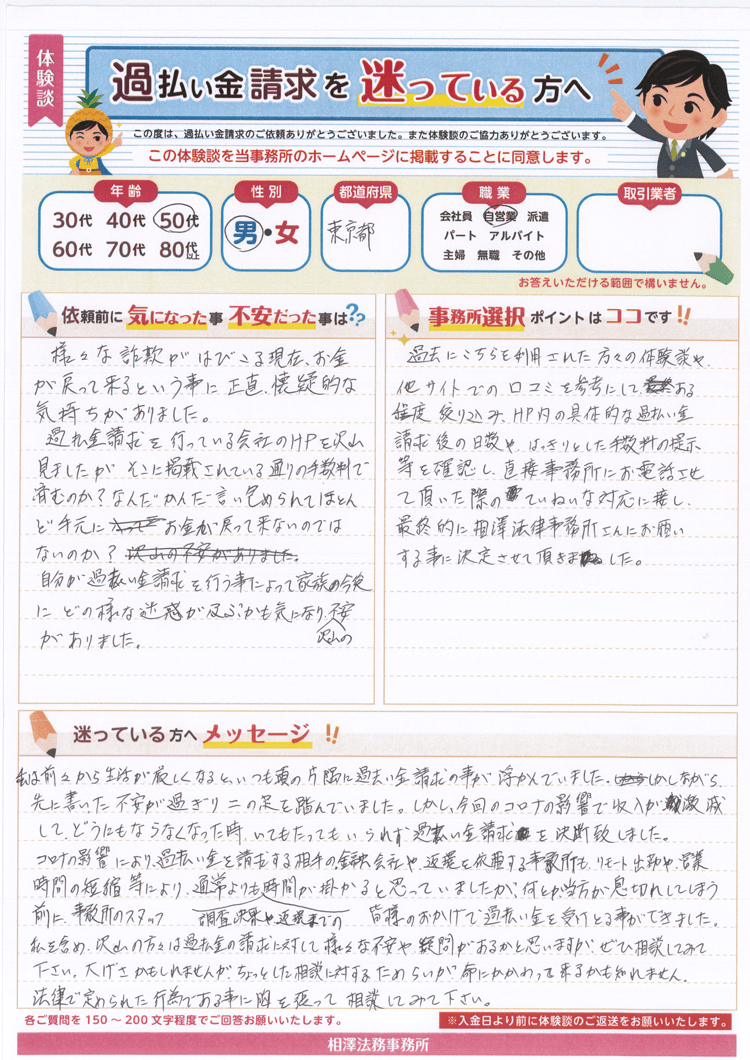 体験談
過払い金請求を迷っている方へ
この度は、過払い金請求のご依頼ありがとうございました。また体験談のご協力ありがとうございます。
この体験談を当事務所のホームページに掲載することに同意します。
年齢
30代 40代 50代
60代 70代 80代以上
性別
男・女
都道府県
東京都
職業
会社員 自営業 派遣
パート アルバイト
主婦 無職 その他
取引業者
お答えいただける範囲で構いません。
依頼前に気になった事 不安だった事は??
様々な詐欺がはびこる現在、お金
が戻って来るという事に正直、懐疑的な
気持ちがありました。
過払金請求を行っている会社のHPを沢山
見ましたが そこに掲載されている通りの手数料で
済むのか？なんだかんだ言い包められてほとん
ど手元に お金が戻って来ないのでは
ないのか？ 沢山の不安がありました。
自分が過払い金請求を行う事によって家族の今後
に どの様な迷惑が及ぶかも気になり、不安
がありました。
沢山の
事務所選択 ポイントは ココです!!
過去にこちらを利用された方々の体験談や、
他サイトでの口コミを参考にして、ある
程度 絞り込み、HP内の具体的な過払い金
請求後の日数や、はっきりとした手数料の提示
等を確認し、直接事務所にお電話させ
て頂いた際の ていねいな対応に接し、
最終的に相澤法律事務所さんにお願い
する事に決定させて頂きました。
迷っている方へ メッセージ !!
私は前々から生活が厳しくなると、いつも頭の片隅に過払い金請求の事が浮かんでいました。しかしながら、
先に書いた不安が過ぎり二の足を踏んでいました。しかし、今回のコロナの影響で収入が激減
して、どうにもならなくなった時、いてもたってもいられず過払い金請求を決断致しました。
コロナの影響により、過払い金を請求する相手の金融会社や、返還を依頼する事務所も、リモート出勤や、営業
時間の短縮等により、通常よりも時間が掛かると思っていましたが、何とか当方が息切れしてしまう
前に、事務所のスタッフ 皆様のおかげで過払い金を受けとる事ができました。
調査決果や返還までの
私を含め、沢山の方々は過払金の請求に対して様々な不安や疑問があるかと思いますが、ぜひ相談してみて
下さい。大げさかもしれませんがちょっとした相談に対するためらいが、命にかかわって来るかも知れません。
法律で定められた行為である事に胸を張って 相談してみて下さい。
各ご質問を150～200文字程度でご回答お願いいたします。
※入金日より前に体験談のご返送をお願いいたします。
相澤法務事務所